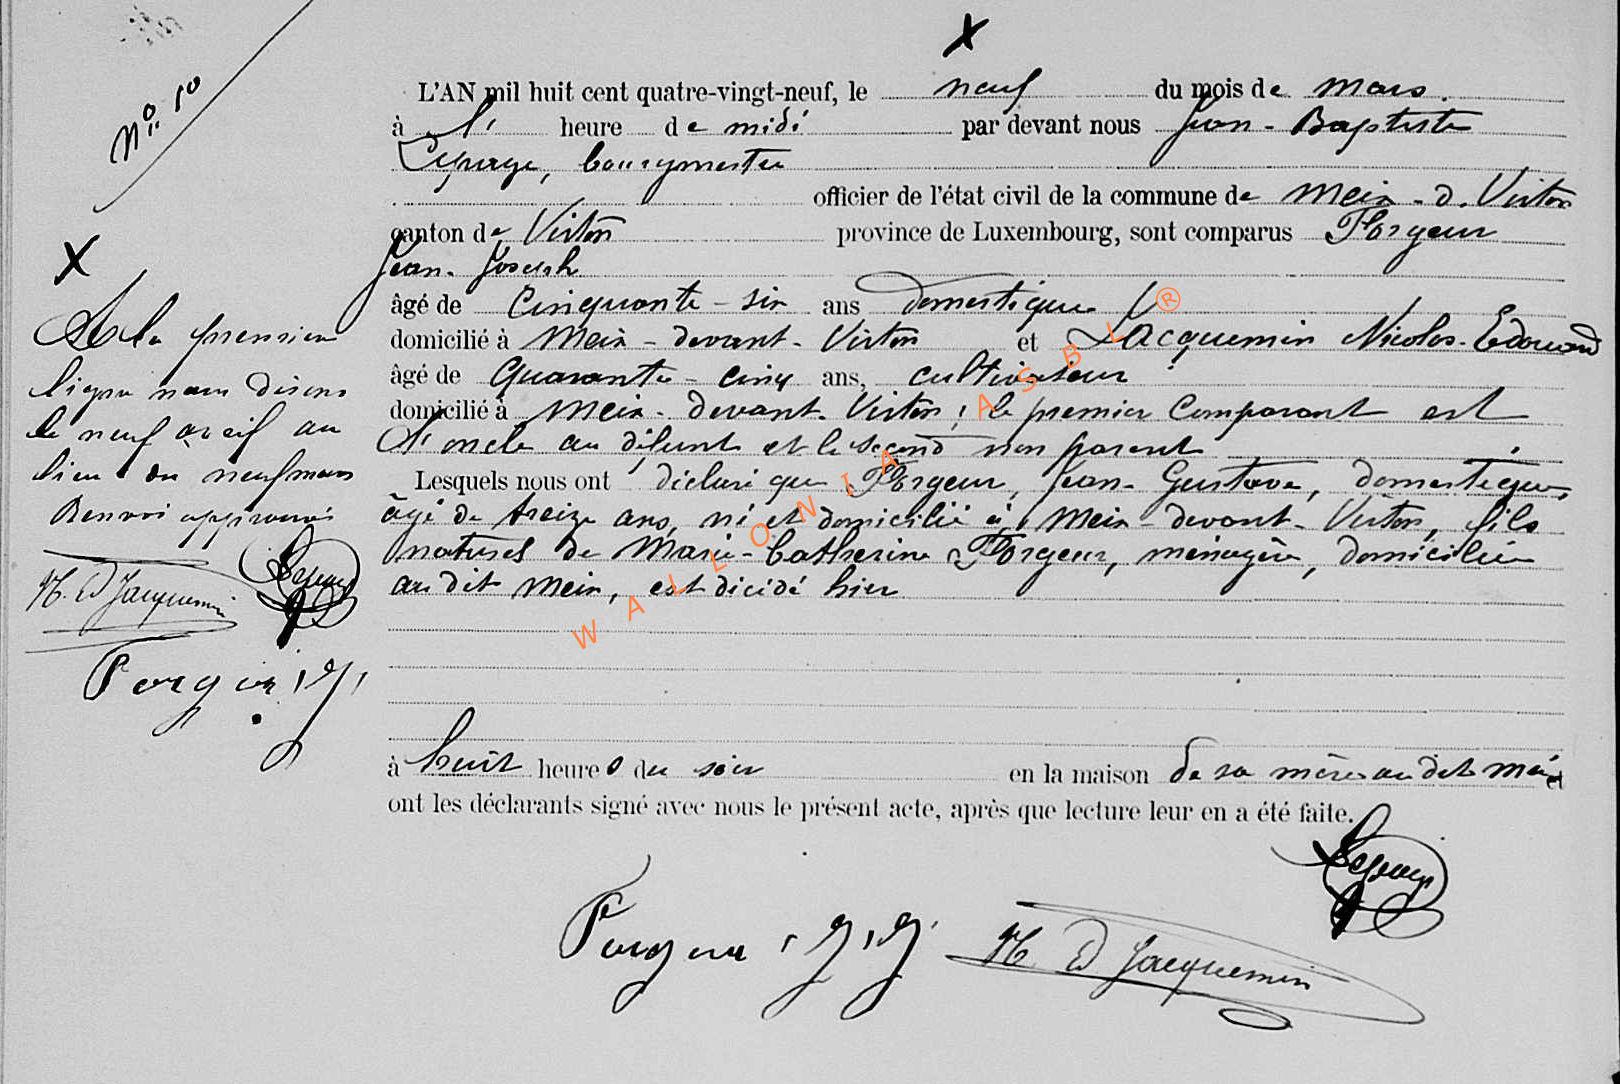 No. 10
L'AN mil huit cent quatre-vingt-neuf, le neuf du mois de mars.
à l' heure de midi par devant nous Jean-Baptiste
Lepage, bourgmestre
officier de l'état civil de la commune de Meix-d. Virton
canton de Virton province de Luxembourg, sont comparus Forgeur
Jean-Joseph
âgé de cinquante-six ans domestique
domicilié à Meix-devant-Virton et Jacquemin Nicolas-Edouard
âgé de quarante-cinq ans, cultivateur
domicilié à Meix-devant-Virton, le premier comparant est
l'oncle au défunt et le second non parent
Lesquels nous ont déclaré que Forgeur, Jean-Gustave, domestique,
âgé de treize ans, né et domicilié à Meix-devant-Virton, fils
naturel de Marie-Catherine Forgeur, ménagère, domiciliée
au dit Meix, est décédé hier
à huit heures du soir en la maison de sa mère au dit Meix et
ont les déclarants signé avec nous le présent acte, après que lecture leur en a été faite.
Lepage
Forgeur, J, J, N Ed Jacquemin
X
X
A la première
ligne nous disons
le neuf avril au
lieu du neuf mars
Renvoi approuvé
N. Ed Jacquemin Lepage
Forgeur, J,
WALLONIA ASBL ®